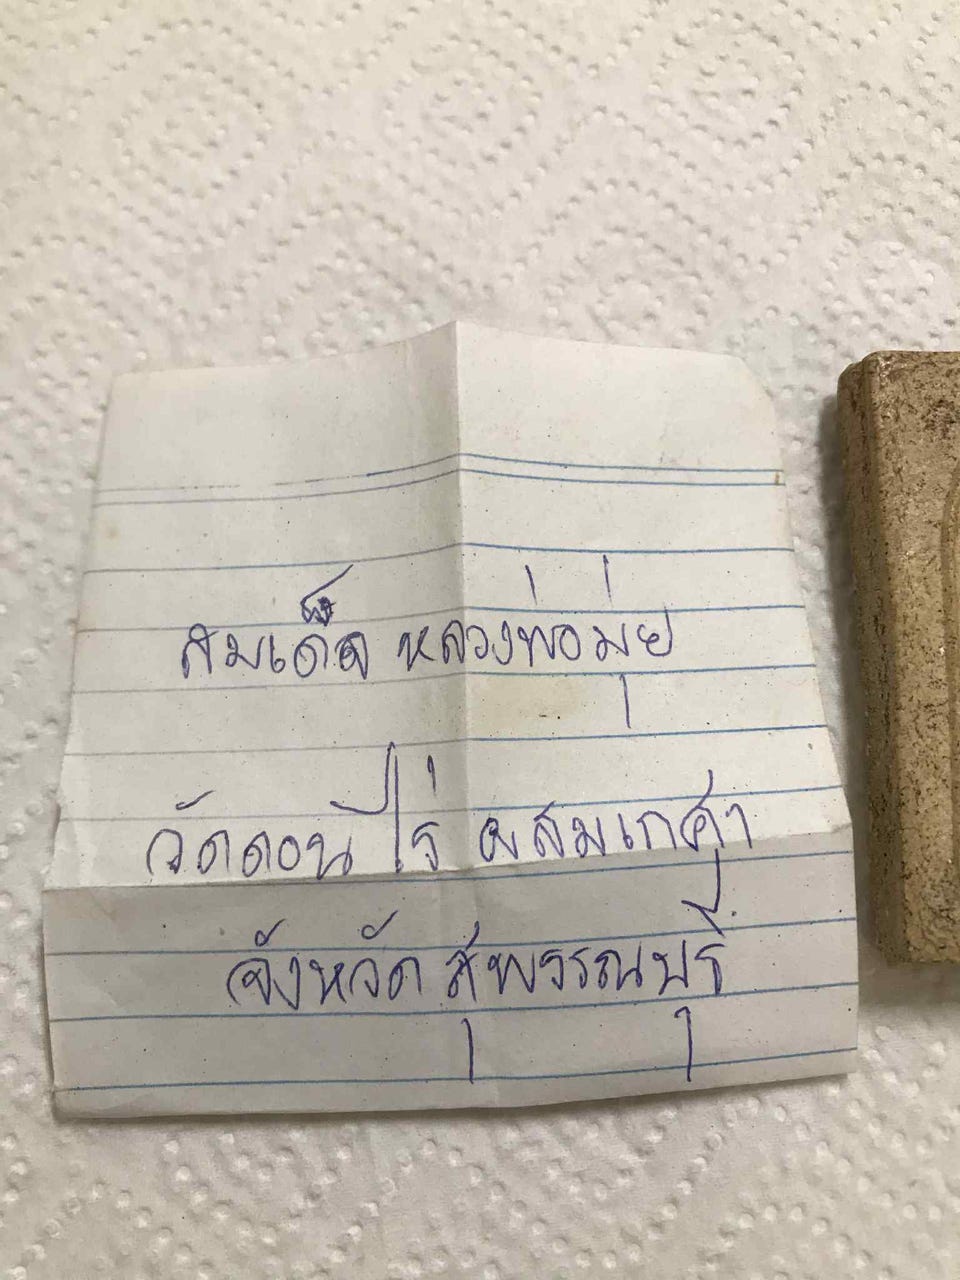 สมเด็จ หลวงพ่อมุ่ย
วัดดอนไร่ ผสมเกศา
จังหวัด สุพรรณบุรี